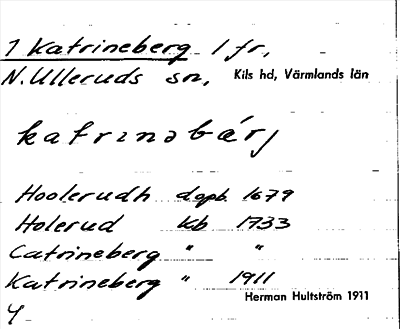 1 Katrineberg 1 fr,
N. Ulleruds sn, Kils hd, Värmlands län
katrɪnəbárj
Hoolerudh dopb. 1679
Holerud kb 1733
Catrineberg " "
Katrineberg " 1911
Herman Hultström 1911
4